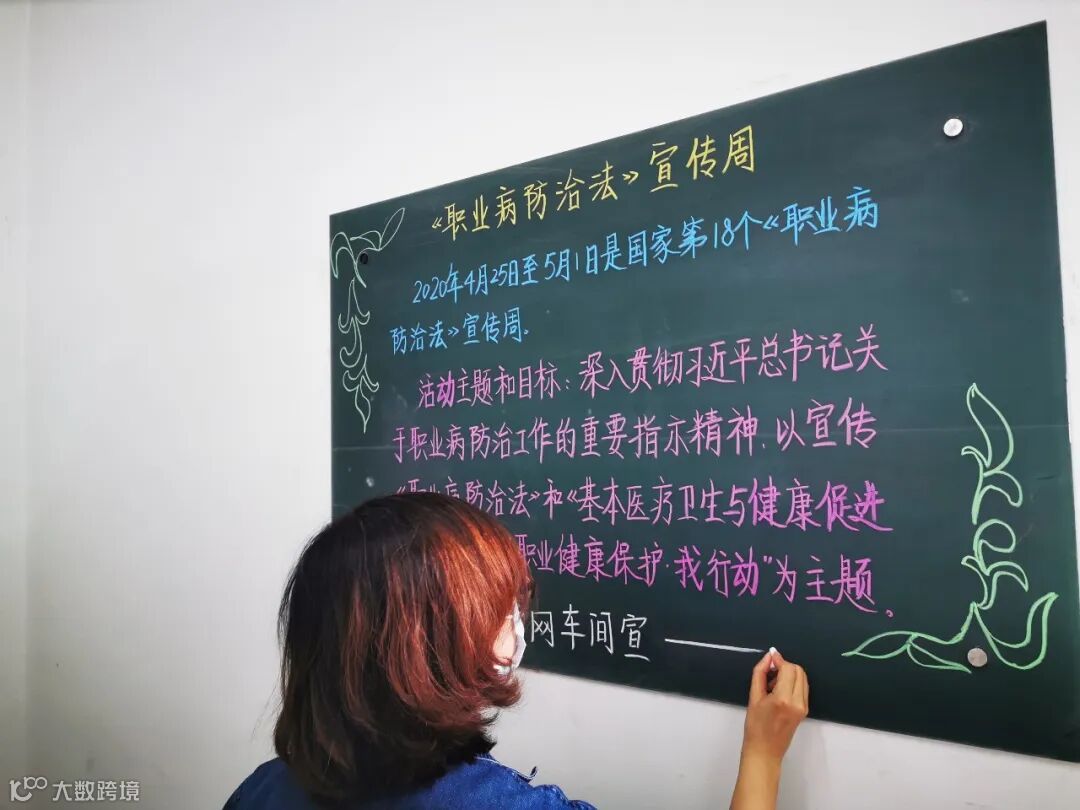 《职业病防治法》宣传周
2020年4月25日至5月1日是国家第18个《职业病
防治法》宣传周。
活动主题和目标：深入贯彻习近平总书记关
于职业病防治工作的重要指示精神，以宣传
《职业病防治法》和《基本医疗卫生与健康促进
职业健康保护·我行动”为主题。
网车间宣
大数跨境